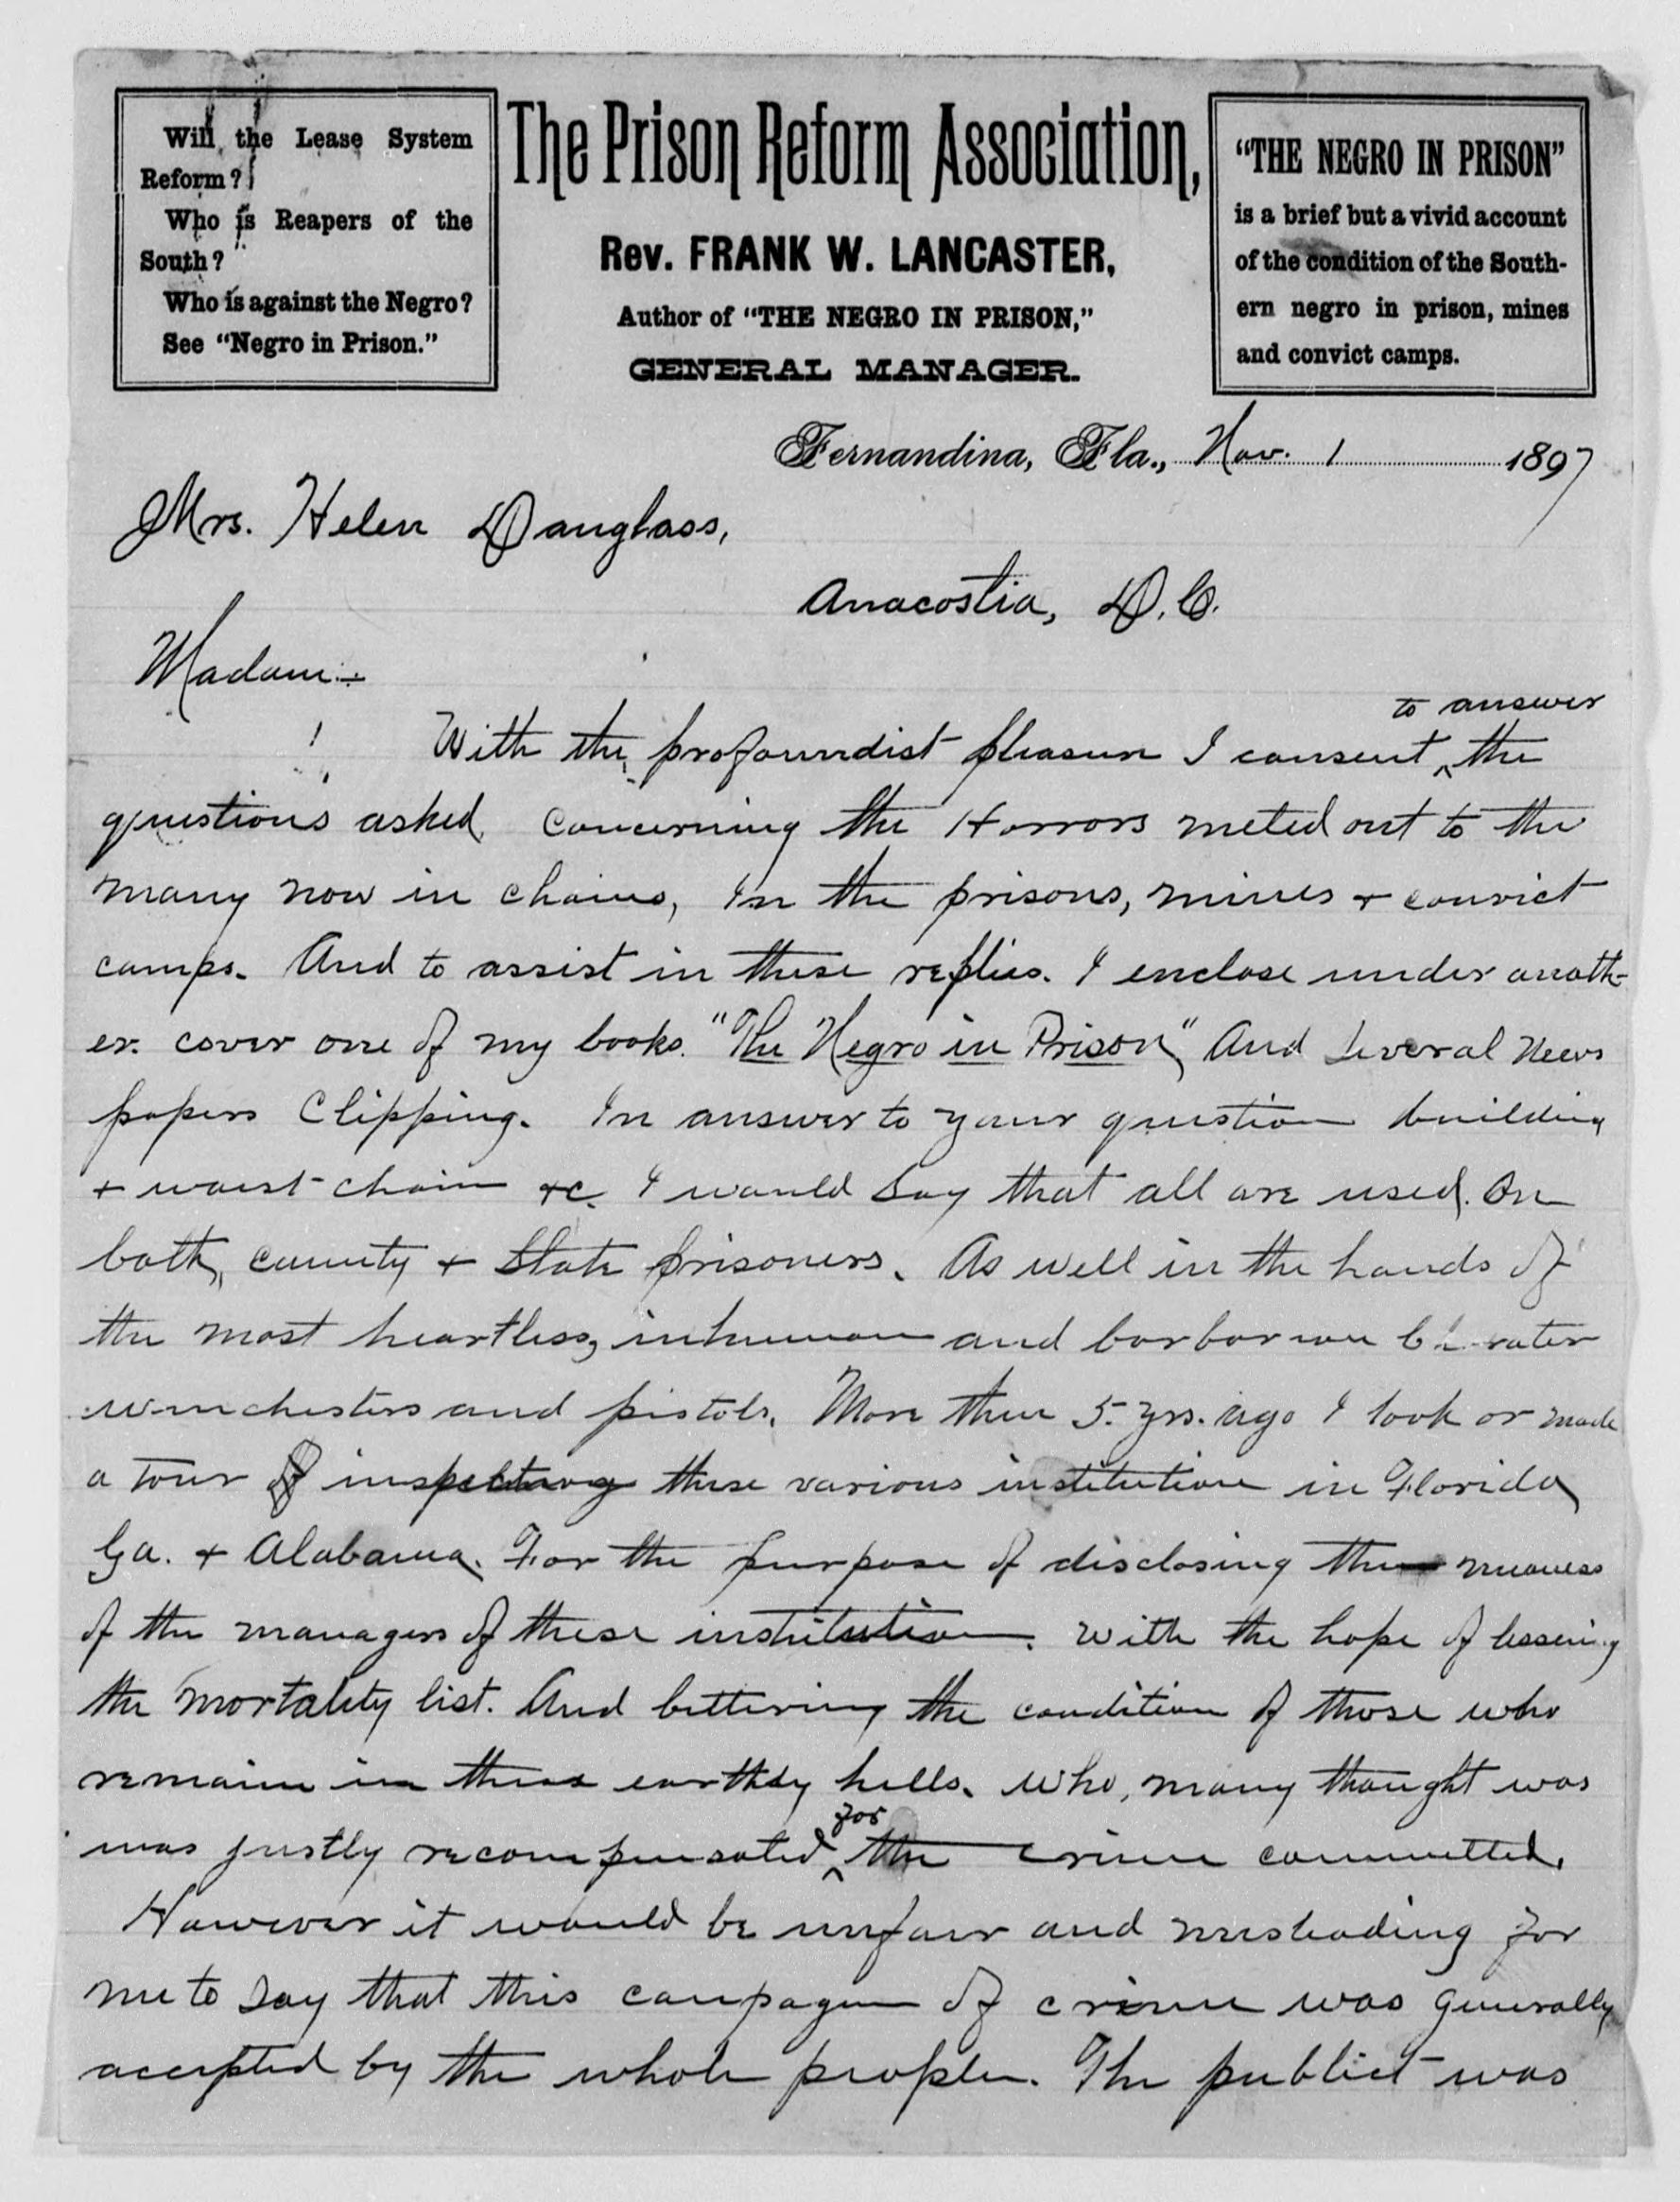 Will the Lease System
Reform?
Who is Reapers of the
South?
Who is against the Negro?
See "Negro in Prison."
The Prison Reform Association,
Rev. FRANK W. LANCASTER,
Author of "THE NEGRO IN PRISON,"
GENERAL MANAGER.
"THE NEGRO IN PRISON"
is a brief but a vivid account
of the condition of the South-
ern negro in prison, mines
and convict camps.
Fernandina, Fla., Nov. 1 1897
Mrs. Helen Douglass,
Anacostia, D.C.
Madam:-
to answer
With the profoundist pleasure I consent ^ the
questions asked concerning the Horrors meted out to the
many now in chains, In the prisons, mines + convict
camps. And to assist in these replies. I enclose under anoth-
er. cover one of my books. "The Negro in Prison" And several News
papers Clipping. In answer to your question building
+ waist-chain &c. I would say that all are used. On
both, county + State prisoners. As well in the hands of
the most heartless, inhuman and barbarian
winchesters and pistols. More then 5. yrs. ago I took or made
a tour of inspecting these various institution in Florida,
Ga. + Alabama. For the purpose of disclosing the meaness
of the managers of these institution. With the hope of lessening
the mortality list. And bettering the condition of those who
remain in these earthly hells. Who, many thought was
for
was justly recompensated ^ the crime committed.
However it would be unfair and misleading for
me to say that this campagn of crime was generally
accepted by the whole people. The publict was